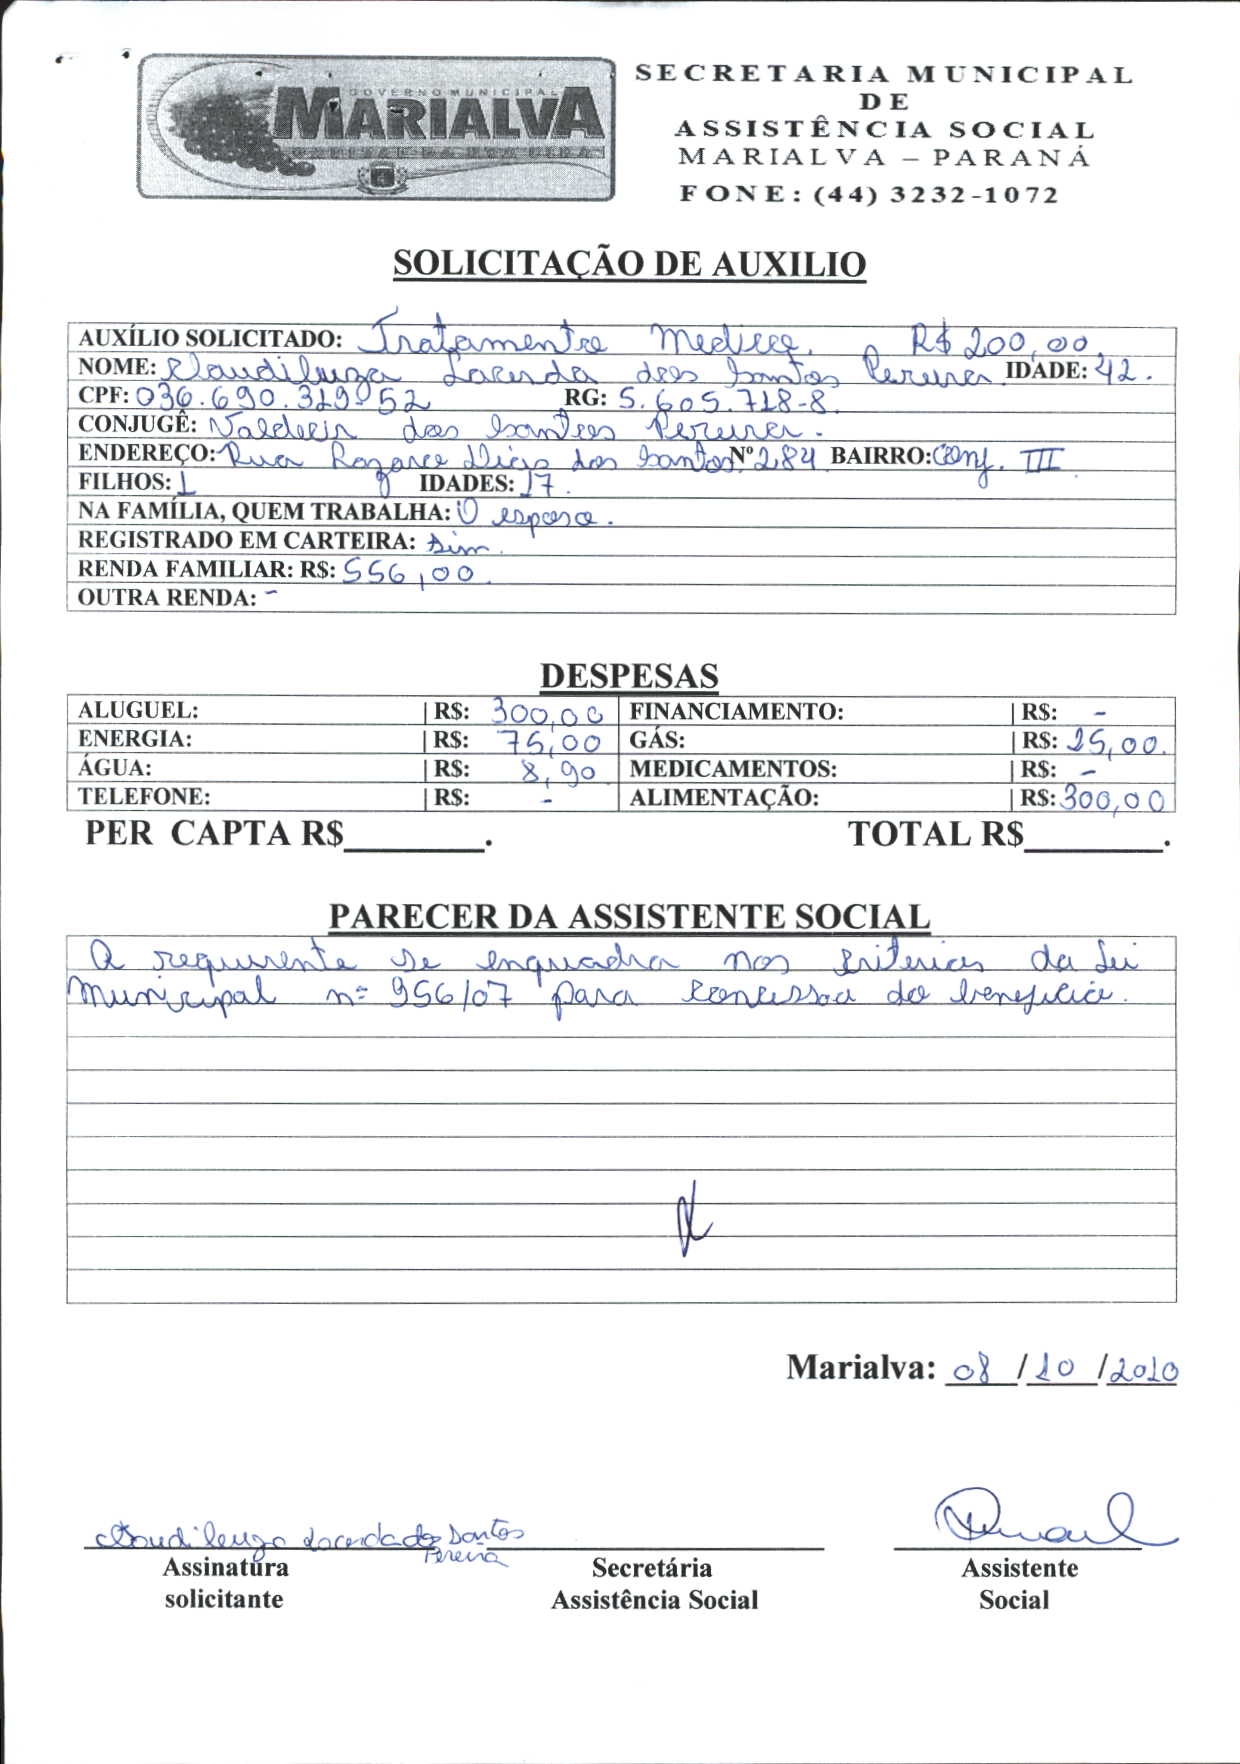 GOVERNO MUNICIPAL
MARIALVA
SECRETARIA MUNICIPAL
DE
ASSISTÊNCIA SOCIAL
MARIALVA – PARANÁ
FONE: (44) 3232-1072
SOLICITAÇÃO DE AUXILIO
AUXÍLIO SOLICITADO: Tratamento Medico. R$ 200,00.
NOME: Claudileuza Lacerda dos Santos Pereira IDADE: 42.
CPF: 036.690.319-52 RG: 5.605.718-8.
CONJUGÊ: Valdecir dos Santos Pereira.
ENDEREÇO: Rua Dias dos Santos Nº 284 BAIRRO: Conj. III
FILHOS: 1 IDADES: 17.
NA FAMÍLIA, QUEM TRABALHA: O esposo.
REGISTRADO EM CARTEIRA: Sim.
RENDA FAMILIAR: R$: 556,00.
OUTRA RENDA: -
DESPESAS
ALUGUEL: R$: 300,00 FINANCIAMENTO: R$: -
ENERGIA: R$: 75,00 GÁS: R$: 25,00.
ÁGUA: R$: 8,90 MEDICAMENTOS: R$: -
TELEFONE: R$: - ALIMENTAÇÃO: R$: 300,00
PER CAPTA R$________. TOTAL R$________.
PARECER DA ASSISTENTE SOCIAL
A requerente se enquadra nos criterios da Lei
Municipal nº 956/07 para concessao do beneficio.
Marialva: 08 /10 /2010
Claudileuza Lacerda dos Santos
Pereira
Assinatura Secretária Assistente
solicitante Assistência Social Social